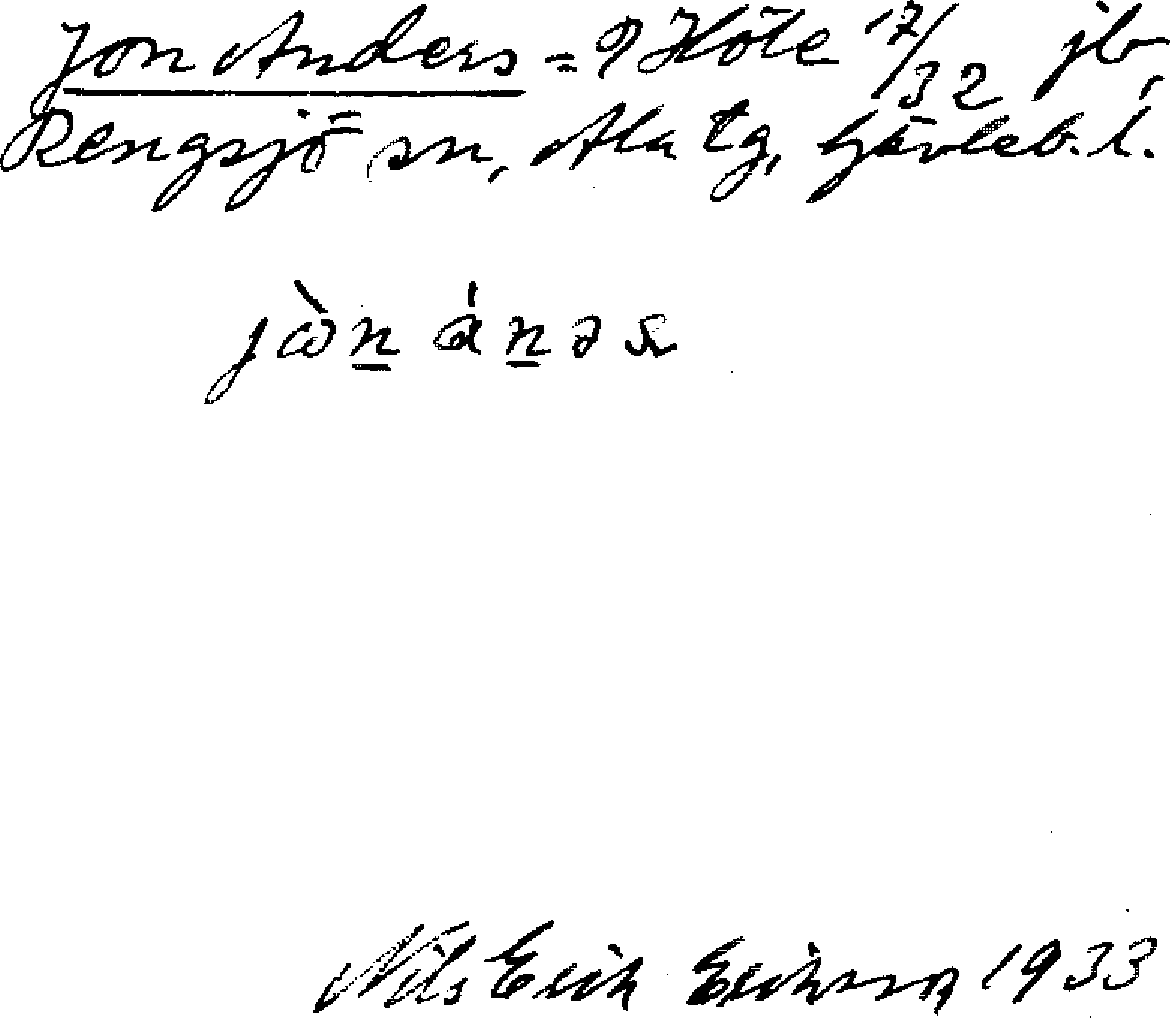 Jon Anders = Höle 17/32 jb,
Rengsjö sn, Ala tg, Gävleb. l.
jὼn̲ án̲əs
Nils Erik Erikson 1933